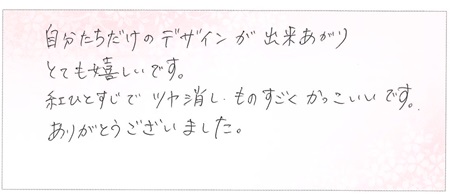 自分たちだけのデザインが出来あがり
とても嬉しいです。
紅ひとすじでツヤ消し.ものすごくかっこいいです。
ありがとうございました。